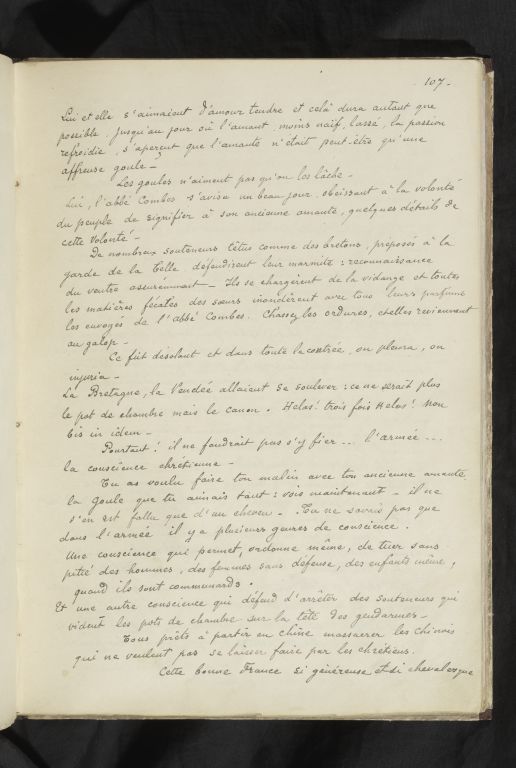 107.
Lui et elle s'aimaient d'amour tendre et celà dura autant que
possible, jusqu'au jour où l'amant, moins naif, lassé, la passion
refroidie, s'aperçut que l'amante n'était peut-être qu'une
affreuse goule _
Les goules n'aiment pas qu'on les lâche _
Lui, l'abbé Combes s'avisa un beau jour, obéissant à la volonté
du peuple de signifier à son ancienne amante, quelques détails de
cette volonté _
De nombreux souteneurs têtus comme des bretons, préposés à la
garde de la belle, défendirent leur marmite : reconnaissance
du ventre assurément _ Ils se chargèrent de la vidange et toutes
les matières fécales des sœurs inondèrent avec tous leurs parfums
les envoyés de l'abbé Combes. Chassez les ordures, et elles reviennent
au galop _
Ce fût désolant et dans toute la contrée, on pleura, on
injuria _
La Bretagne, la Vendée allaient se soulever : ce ne serait plus
le pot de chambre mais le canon. Hélas! trois fois Hélas! non
bis in idem _
Pourtant! il ne faudrait pas s'y fier ... l'armée ...
la conscience chrétienne _
Tu as voulu faire ton malin avec ton ancienne amante,
la Goule que tu aimais tant : vois maintenant _ il ne
s'en est fallu que d'un cheveu _ Tu ne savais pas que
dans l'armée il y a plusieurs genres de conscience.
Une conscience qui permet, ordonne même, de tuer sans
pitié des hommes, des femmes sans défense, des enfants même,
quand ils sont communards.
Et une autre conscience qui défend d'arrêter des souteneurs qui
vident les pots de chambre sur la tête des gendarmes _
Tous prêts à partir en Chine massacrer les Chinois
qui ne veulent pas se laisser faire par les chrétiens.
Cette bonne France si généreuse et si chevaleresque